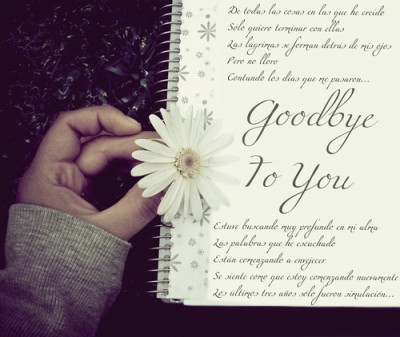 De todas las cosas en las que he creido
Solo quiero terminar con ellas
Las lagrimas se forman detrás de mis ojos
Pero no lloro
Contando los dias que me pasaron...
Goodbye
To You
Estuve buscando muy profundo en mi alma
Las palabras que he escuchado
Están comenzando a envejecer
Se siente como que estoy comenzando nuevamente
Los últimos tres años solo fueron simulación...